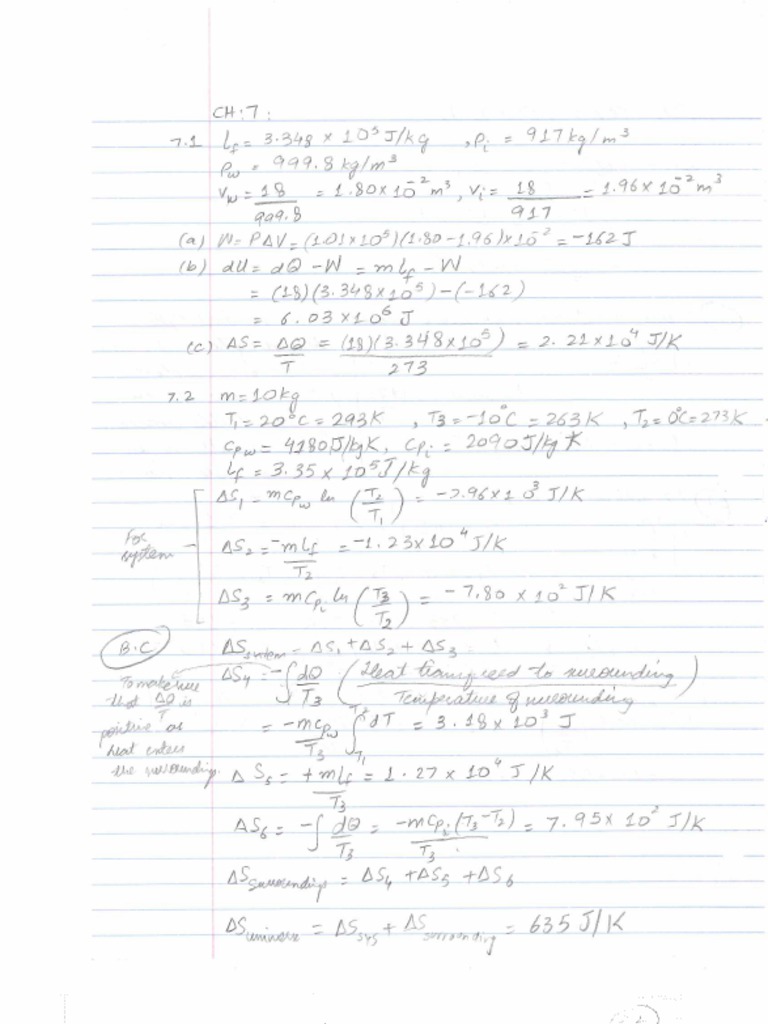 CH:7:
7.1 Lf = 3.348 × 10⁵ J/kg , ρi = 917 kg/m³
ρw = 999.8 kg/m³
Vw = 18/999.8 = 1.80 × 10⁻² m³, Vi = 18/917 = 1.96 × 10⁻² m³
(a) W = PΔV = (1.01×10⁵)(1.80 - 1.96)×10⁻² = -162 J
(b) dU = dQ - W = mLf - W
= (18)(3.348×10⁵) - (-162)
= 6.03 × 10⁶ J
(c) ΔS = ΔQ/T = (18)(3.348×10⁵)/273 = 2.21×10⁴ J/K
7.2 m = 10kg
T1 = 20°C = 293K , T3 = -10°C = 263K , T2 = 0°C = 273K
Cpw = 4180J/kgK, Cpi = 2090J/kg K
Lf = 3.35 × 10⁵ J/kg
ΔS1 = mCpw ln (T2/T1) = -2.96×10³ J/K
For
system
ΔS2 = -mLf/T2 = -1.23×10⁴ J/K
ΔS3 = mCpi ln (T3/T2) = -7.80 × 10² J/K
B.C
ΔSsystem = ΔS1 + ΔS2 + ΔS3
ΔS4 = -∫dQ/T3 (Heat transfered to surrounding/Temperature of surrounding)
To make sure
that ΔQ/T is
positive as
heat enters
the surrounding.
= -mCpw/T3 ∫T1 T2 dT = 3.18 × 10³ J
ΔS5 = +mLf/T3 = 1.27 × 10⁴ J/K
ΔS6 = -∫dQ/T3 = -mCpi(T3-T2)/T3 = 7.95 × 10² J/K
ΔSsurroundings = ΔS4 + ΔS5 + ΔS6
ΔSuniverse = ΔSsys + ΔSsurrounding = 635 J/K